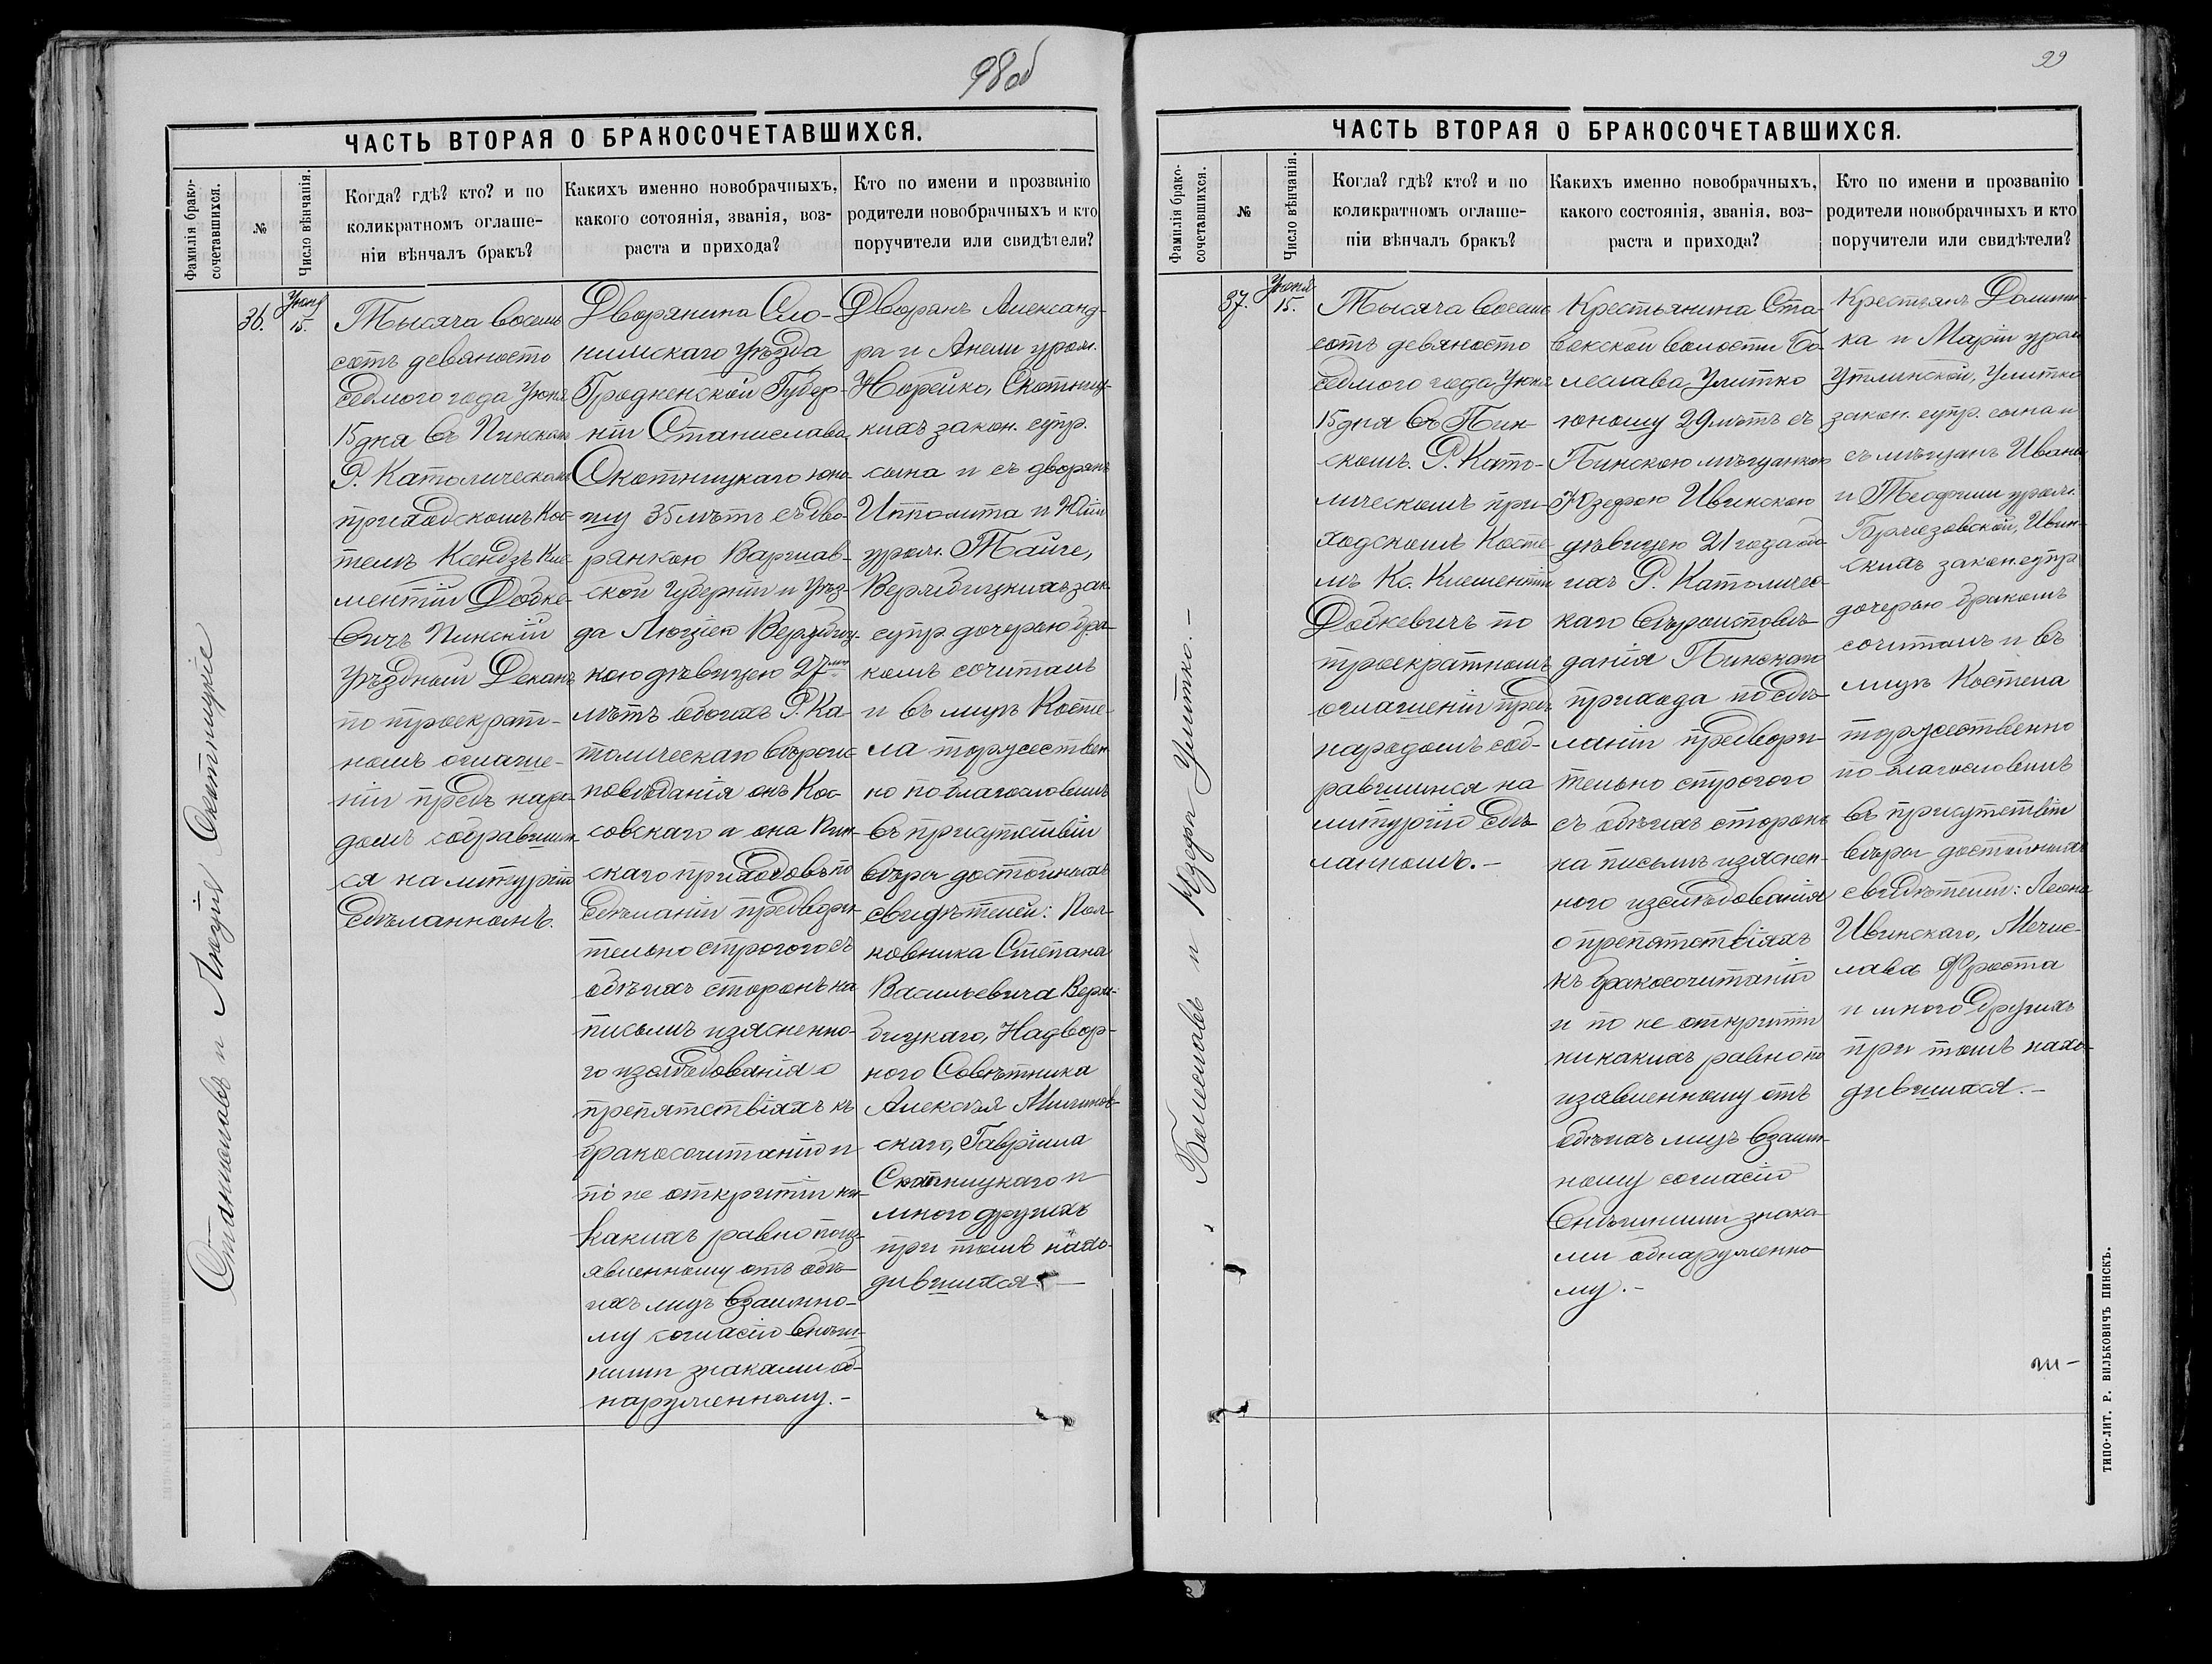 98об
ЧАСТЬ ВТОРАЯ О БРАКОСОЧЕТАВШИХСЯ.
Фамилія брако-
сочетавшихся.
№
Число вѣнчанія.
Когда? гдѣ? кто? и по
коликратномъ оглаше-
ніи вѣнчалъ бракъ?
Какихъ именно новобрачныхъ,
какого сотоянія, званія, воз-
раста и прихода?
Кто по имени и прозванію
родители новобрачныхъ и кто
поручители или свидѣтели?
Станиславъ и Люція Скотницкіе
36.
Іюня
15.
Тысяча восемь
сотъ девяносто
седмого года Іюня
15 дня въ Пинскомъ
Р. Католическомъ
приходскомъ Кос-
телѣ Ксендзъ Кле-
ментій Добке-
вичъ Пинскій
Уѣздный Деканъ
по троекрат-
номъ оглаше-
ніи предъ наро-
домъ собравшим-
ся на литургію
сдѣланномъ.
Дворянина Сло-
нимскаго Уѣзда
Гродненской Губер-
ніи Станислава
Скотницкаго юно-
шу 35 лѣтъ съ дво-
рянкою Варшав-
ской Губерніи и Уѣз-
да Люціею Вержбиц-
кою дѣвицею 27
лѣтъ обоихъ Р. Ка-
толическаго вѣроис-
повѣданія онъ Кос-
совскаго а она Пин-
скаго приходовъ по
сдѣланіи предвори-
тельно строгого съ
обѣихъ сторонъ на
письмѣ изясненно-
го изслѣдованія о
препятствіяхъ къ
бракосочитанію и
по не открытіи ни-
какихъ равно по из-
явленному отъ обѣ-
ихъ лицъ взаимно-
му согласію внѣш-
ними знаками об-
наруженному.-
Дворянъ Александ-
ра и Анели урож.
Норейко, Скотниц-
кихъ закон. супр.
сына и съ дворянъ
Ипполита и Юліи
урож. Тайче,
Вержбицкихъ зак.
супр. дочерью бра-
комъ сочиталъ
и въ лицѣ Косте-
ла торжествен-
но поблагословилъ
въ присутствіи
вѣры достойныхъ
свидѣтелей: Пол-
ковника Степана
Васильевича Верж-
бицкаго, Надвор-
ного Совѣтника
Алексѣя
скаго, Гавріила
Скотницкаго и
много другихъ
при томъ нахо-
дившихся. -
99
ЧАСТЬ ВТОРАЯ О БРАКОСОЧЕТАВШИХСЯ.
Фамилія брако-
сочетавшихся.
№
Число вѣнчанія.
Когда? гдѣ? кто? и по
коликратномъ оглаше-
ніи вѣнчалъ бракъ?
Какихъ именно новобрачныхъ,
какого состоянія, званія, воз-
раста и прихода?
Кто по имени и прозванію
родители новобрачныхъ и кто
поручители или свидѣтели?
Болеславъ и Юзефа Улитко.-
37.
Іюня
15.
Тысяча восемь
сотъ девяносто
седмого года Іюня
15 дня въ Пин-
скомъ. Р. Като-
лическомъ при-
ходскомъ Косте-
лѣ Кс. Клементій
Добкевичъ по
троекратномъ
оглашеніи предъ
народомъ соб-
равшимся на
литургію сдѣ-
ланномъ.-
Крестьянина Ста-
вокской волости Бо-
леслава Улитко
юношу 29 лѣтъ съ
Пинскою мѣщанкою
Юзефою Ивинскою
дѣвицею 21 года обо-
ихъ Р. Католичес-
каго вѣроисповѣ-
данія Пинскаго
прихода по сдѣ-
ланіи предвори-
тельно строгого
съ обѣихъ сторонъ
на письмѣ изяснен-
ного изслѣдованія
о препятствіяхъ
къ бракосочитанію
и по не открытіи
никакихъ равно по
изявленному отъ
обѣихъ лицъ взаим-
ному согласію
внѣшними знака-
ми обнаруженно-
му.-
Крестьянъ Домини-
ка и Маріи урож.
Утлинской, Улитко
закон. супр. сына и
съ мѣщанъ Ивана
и Теофили урож.
Бржезовской, Ивин-
скихъ закон. супр.
дочерью бракомъ
сочиталъ и въ
лицѣ Костела
торжественно
поблагословилъ
въ присутствіи
вѣры достойныхъ
свидѣтелей: Леона
Ивинскаго, Мечис-
лава Фроста
и много другихъ
при томъ нахо-
дившихся.-
ТИПО-ЛИТ. Р. ВИЛЬКОВИЧЪ ПИНСКЪ.